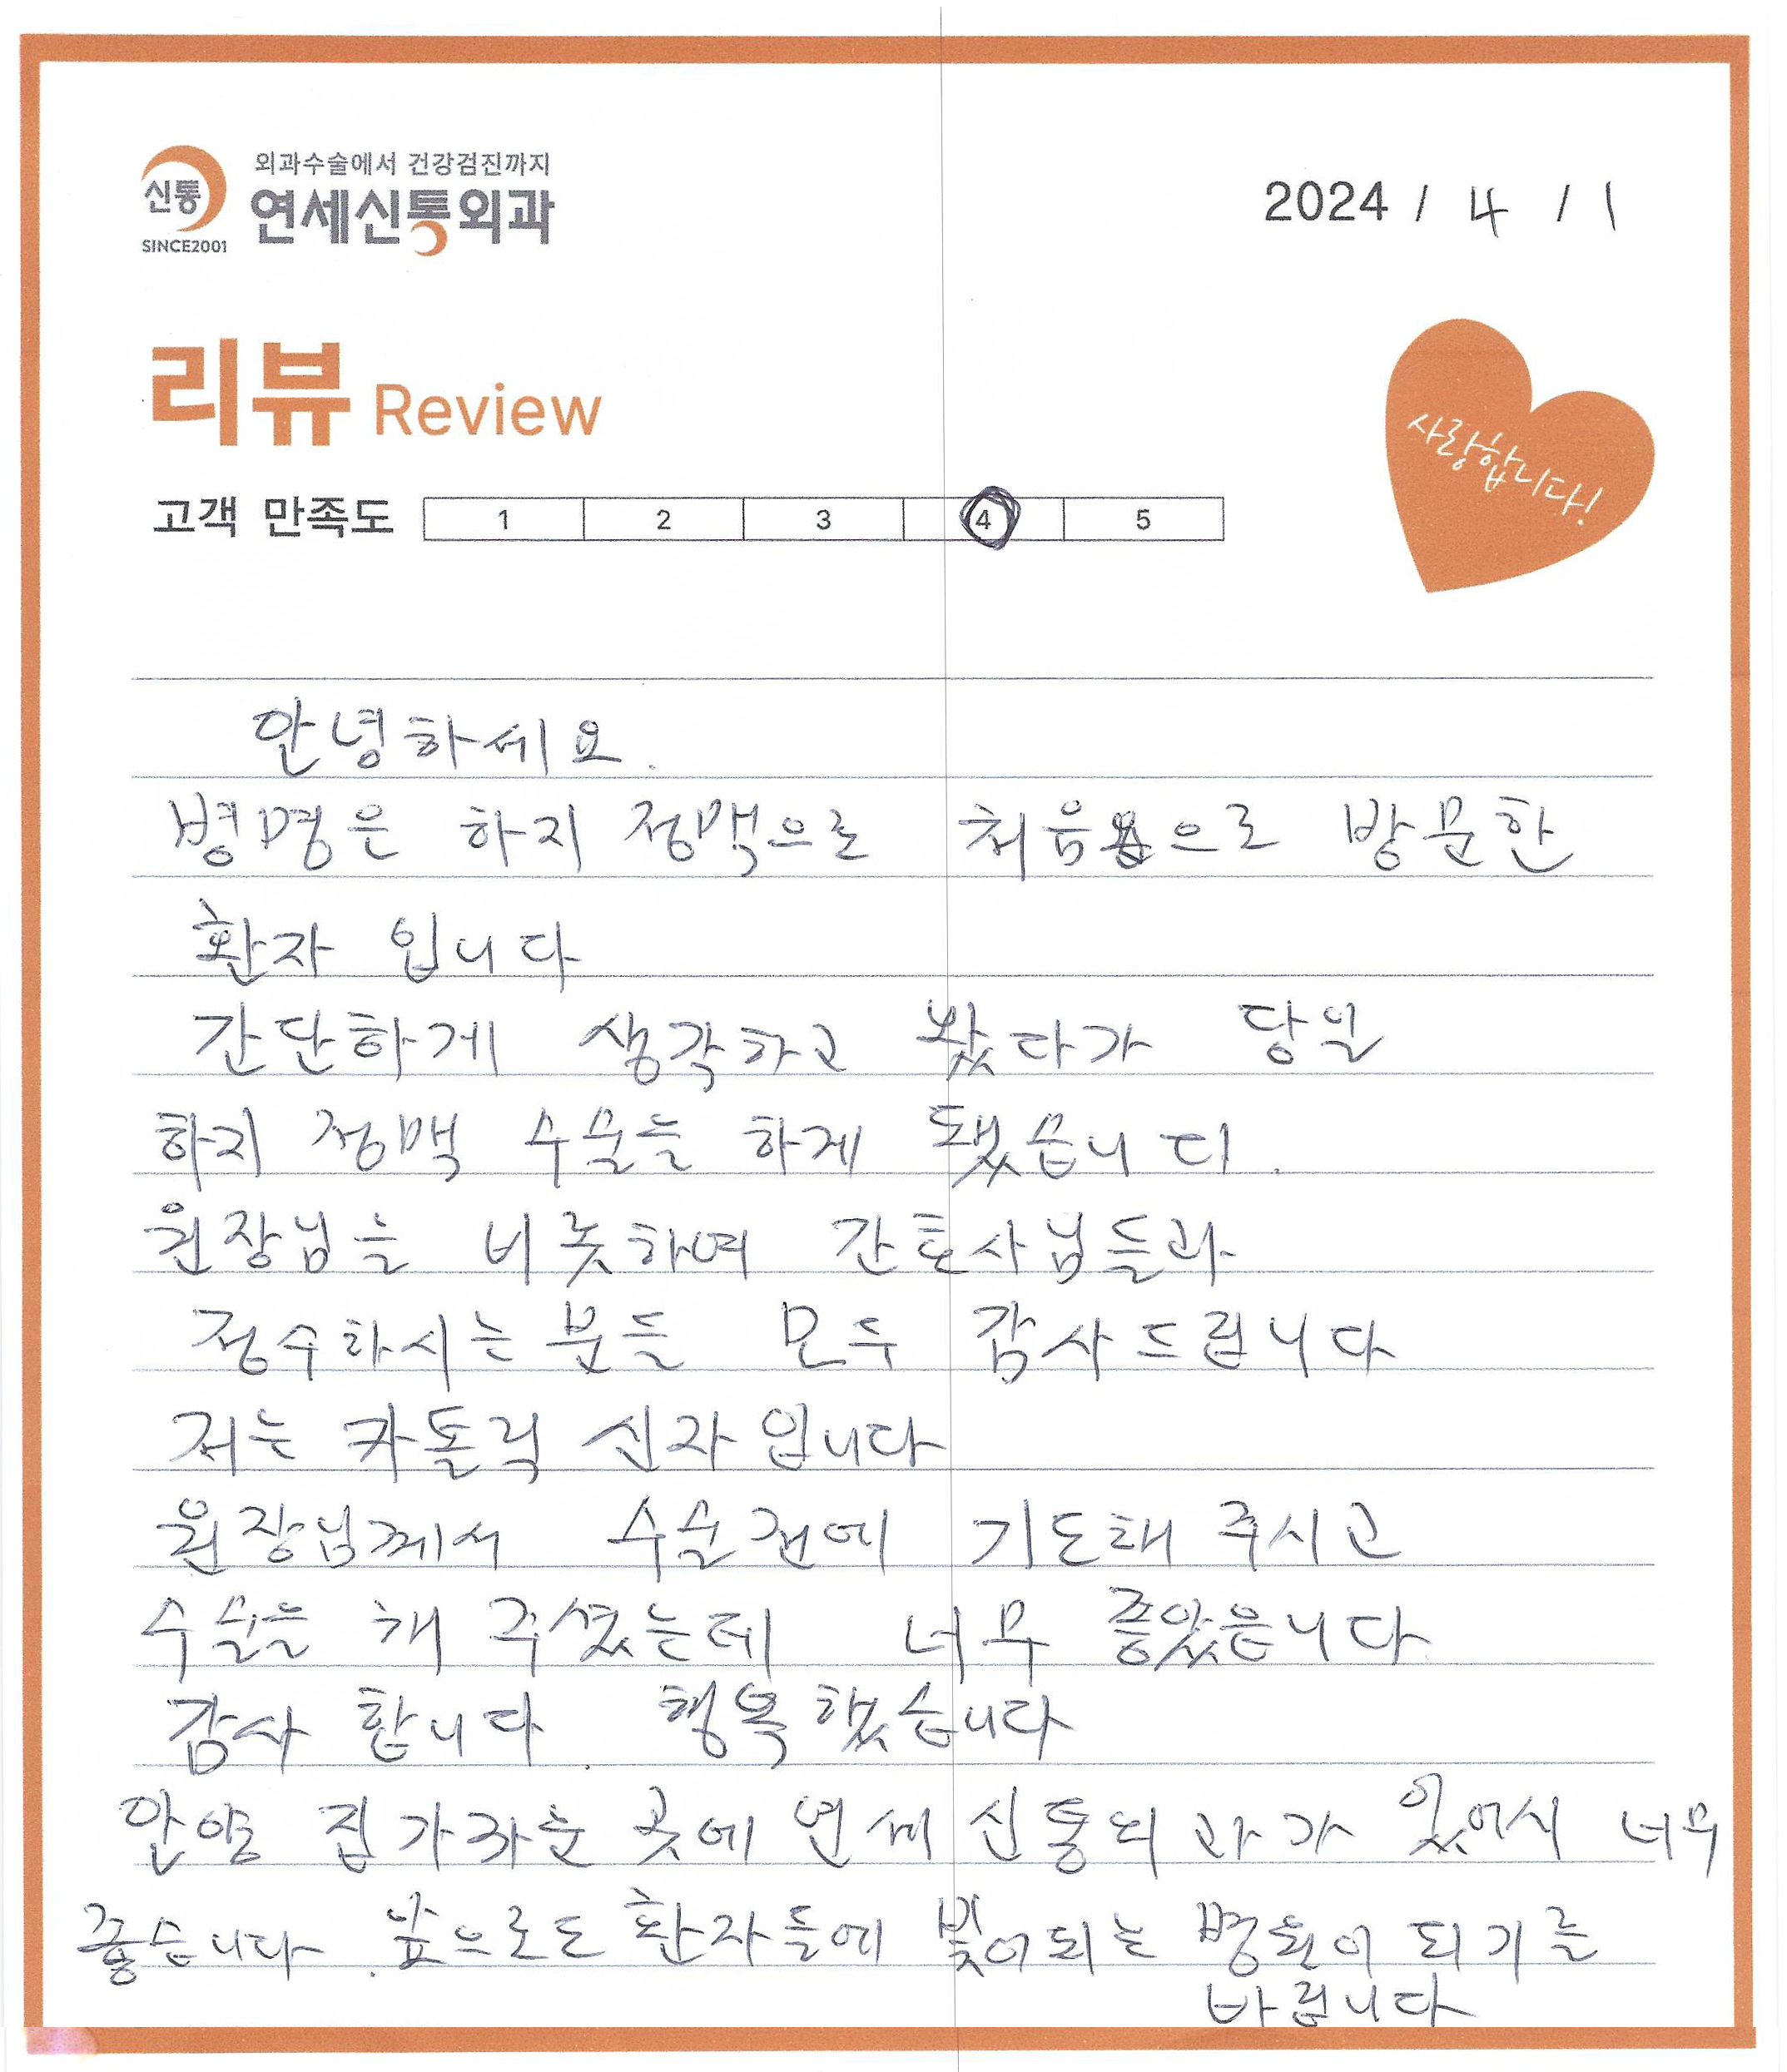 신통
SINCE2001
외과수술에서 건강검진까지
연세신통외과
2024 / 4 / 1
리뷰 Review
사랑합니다!
고객 만족도 1 2 3 4 5
안녕하세요.
병명은 하지 정맥으로 처음으로 방문한
환자 입니다
간단하게 생각하고 왔다가 당일
하지 정맥 수술을 하게 됐습니다.
원장님을 비롯하여 간호사님들과
접수하시는분들 모두 감사드립니다
저는 카톨릭 신자입니다
원장님께서 수술전에 기도해 주시고
수술을 해 주셨는데 너무 좋았읍니다
감사 합니다. 행복했습니다
안양 집 가까운 곳에 연세 신통외과가 있어서 너무
좋습니다. 앞으로도 환자들에 빛이되는 병원이 되기를
바랍니다